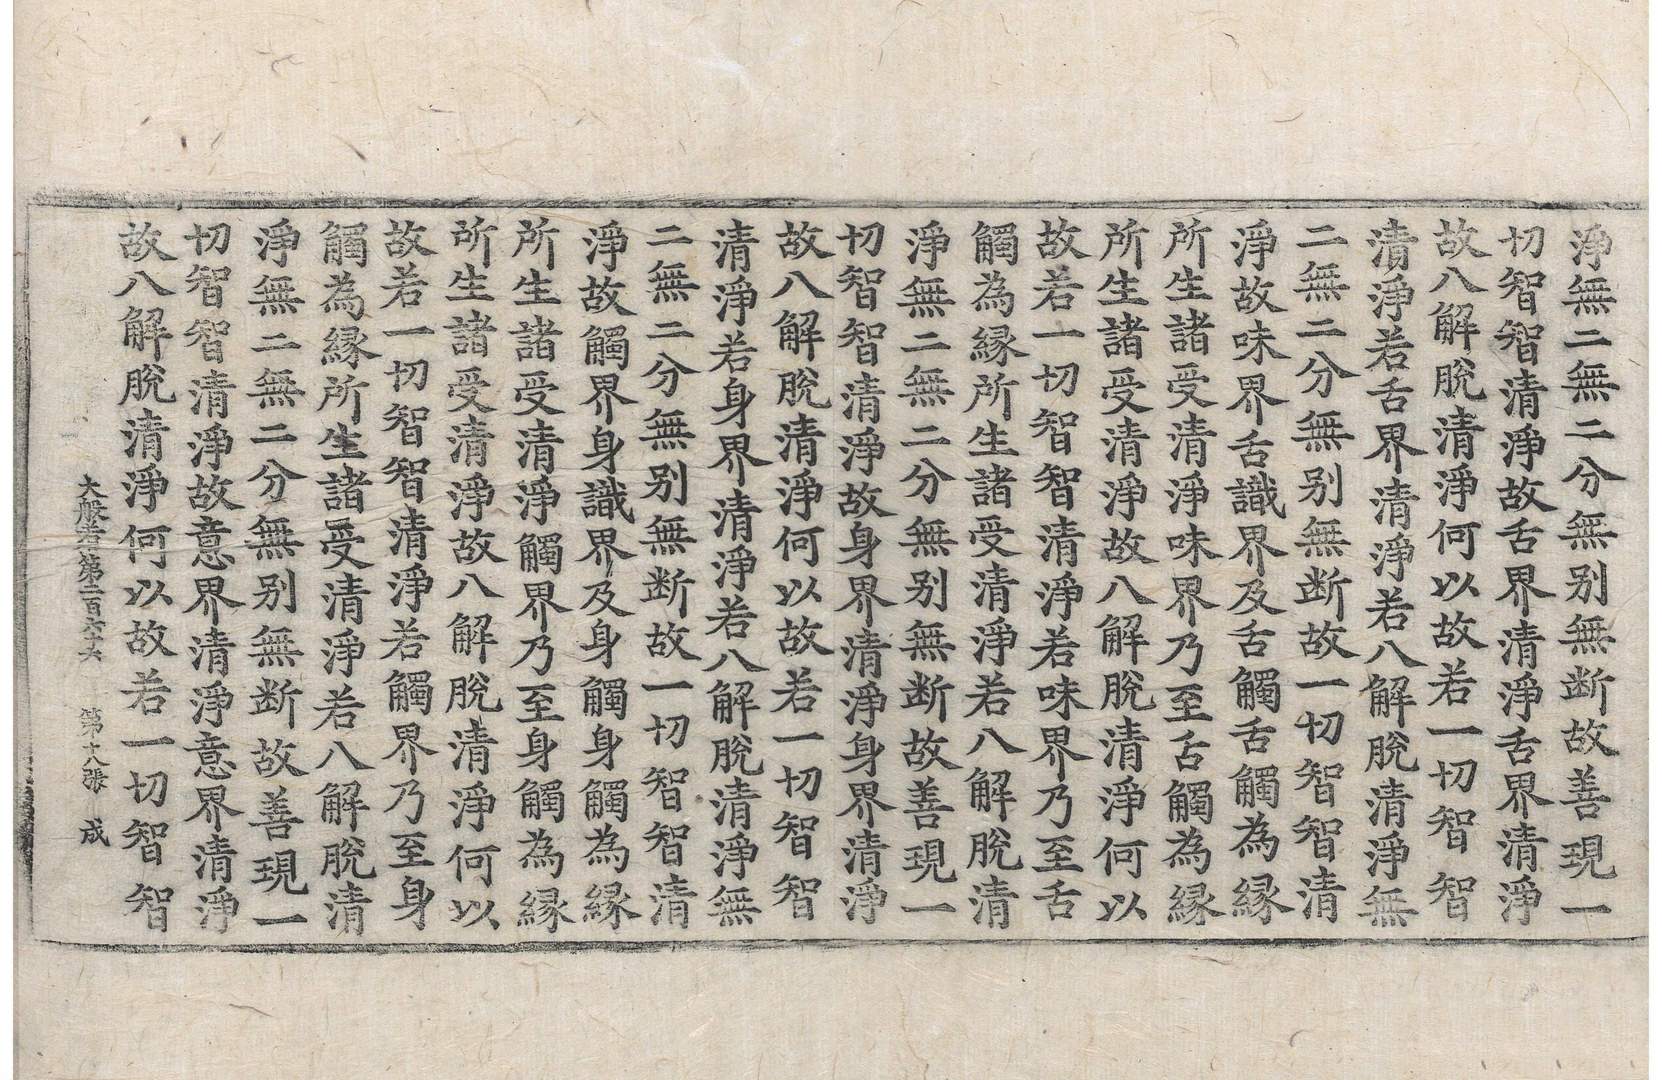 淨無二無二分無别無断故善現一
切智智清淨故舌界清淨舌界清淨
故八解脫清淨何以故若一切智智
清淨若舌界清淨若八解脫清淨無
二無二分無别無断故一切智智清
淨故味界舌識界及舌觸舌觸為縁
所生諸受清淨味界乃至舌觸為縁
所生諸受清淨故八解脫清淨何以
故若一切智智清淨若味界乃至舌
觸為縁所生諸受清淨若八解脫清
淨無二無二分無别無断故善現一
切智智清淨故身界清淨身界清淨
故八解脫清淨何以故若一切智智
清淨若身界清淨若八解脫清淨無
二無二分無别無断故一切智智清
淨故觸界身識界及身觸身觸為縁
所生諸受清淨觸界乃至身觸為縁
所生諸受清淨故八解脫清淨何以
故若一切智智清淨若觸界乃至身
觸為縁所生諸受清淨若八解脫清
淨無二無二分無别無断故善現一
切智智清淨故意界清淨意界清淨
故八解脫清淨何以故若一切智智
大般若第二百六十六 第十八張 成